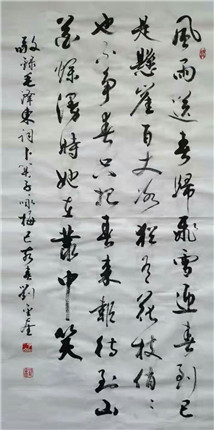 風雨送春歸飛雪迎春到已
是懸崖百丈冰猶有花枝俏〻
也不爭春只把春來報待到山
花爛漫時她在叢中笑
敬錄毛澤東詞卜算子咏梅己亥春劉